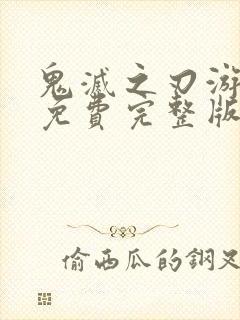 鬼滅之刃游
免費完整版
偷西瓜的鋼叉